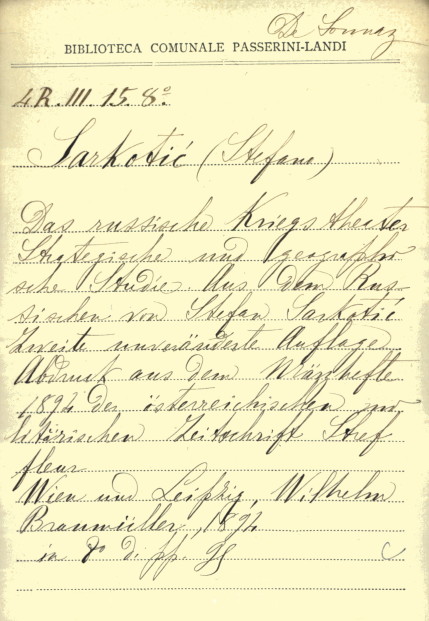 De Sonnaz
BIBLIOTECA COMUNALE PASSERINI-LANDI
4R.III.15.8º.
Sarkotić (Stefano)
Das russische Kriegstheater
Strategische und geographi
sche Studie. Aus dem Rus-
sischen von Stefan Sarkotić
Zweite unveränderte Auflage
Abdruck aus dem Märzhefte
1892 der österreichischen mi
litärischen Zeitschrift Stref
fleur
Wien und Leipzig, Wilhelm
Braumüller, 1892
in 8º di pp.